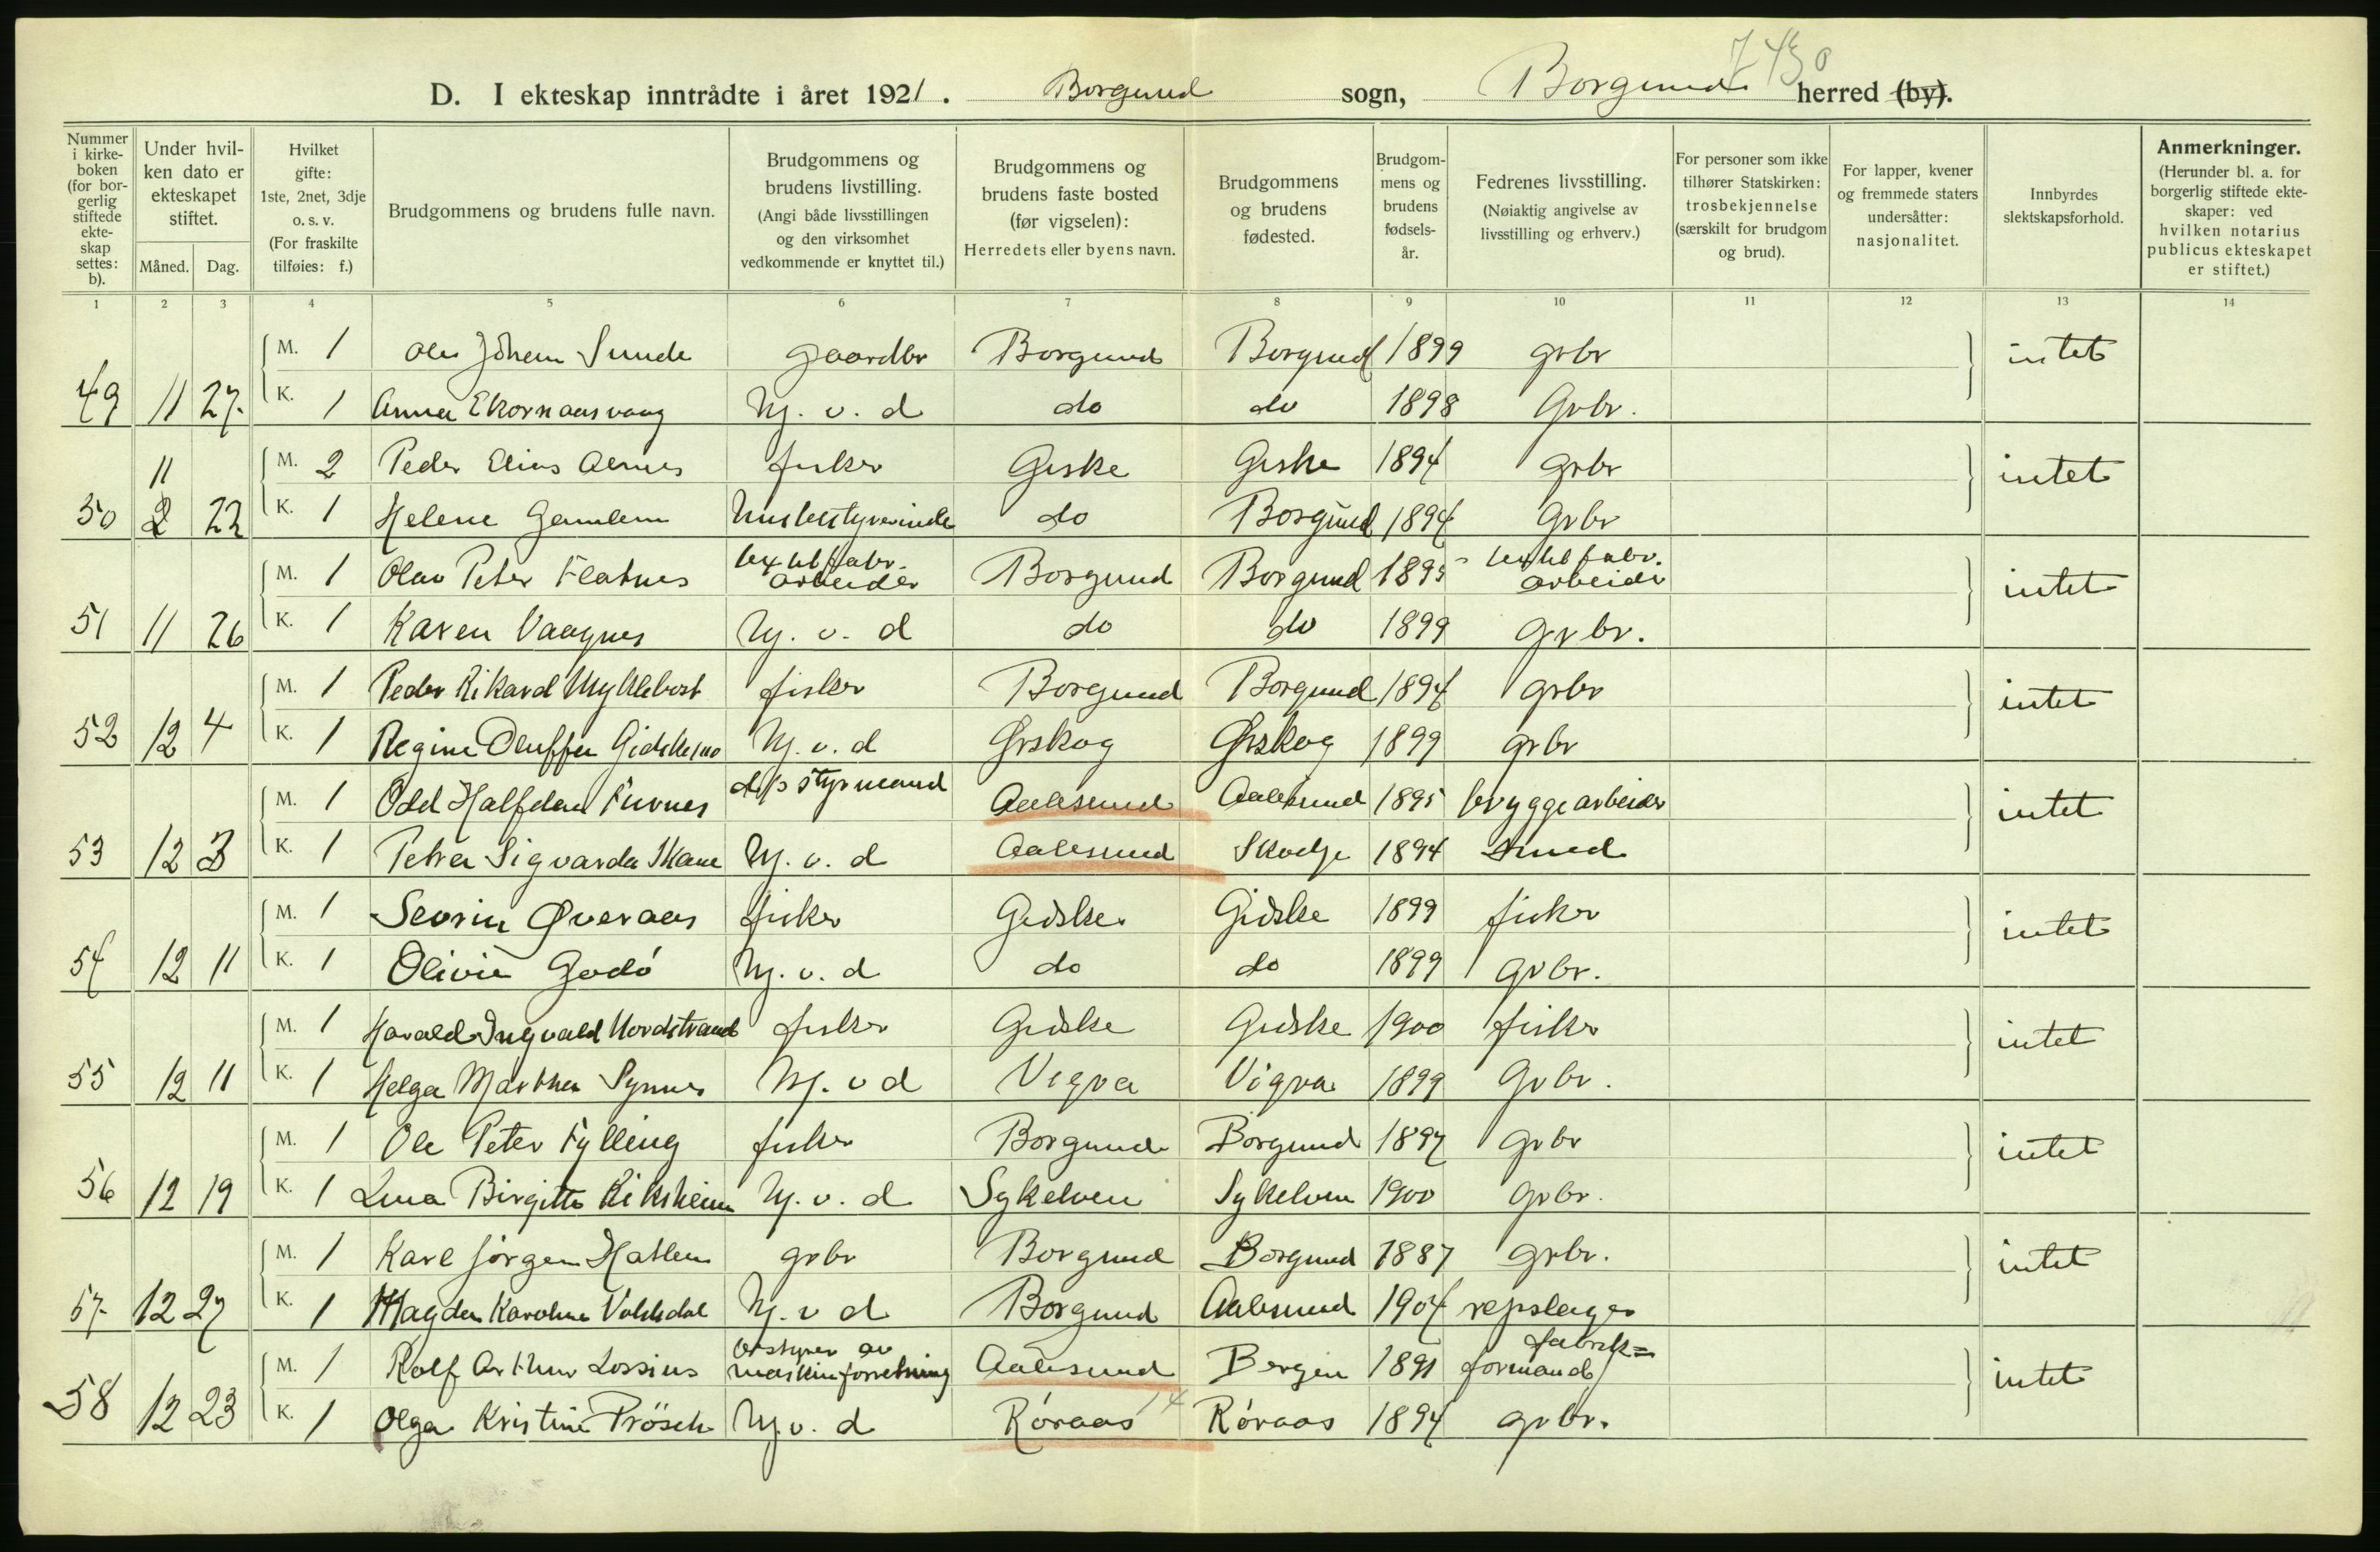 7430
D. I ekteskap inntrådte i året 1921. Borgund sogn, Borgund herred (by).
Nummer i kirkeboken (for borgerlig stiftede ekteskap settes: b).
Under hvilken dato er ekteskapet stiftet.
Måned. Dag.
Hvilket gifte: 1ste, 2net, 3dje o. s. v. (For fraskilte tilføies: f.)
Brudgommens og brudens fulle navn.
Brudgommens og brudens livstilling. (Angi både livsstillingen og den virksomhet vedkommende er knyttet til.)
Brudgommens og brudens faste bosted (før vigselen): Herredets eller byens navn.
Brudgommens og brudens fødested.
Brudgommens og brudens fødselsår.
Fedrenes livsstilling. (Nøiaktig angivelse av livsstilling og erhverv.)
For personer som ikke tilhører Statskirken: trosbekjennelse (særskilt for brudgom og brud).
For lapper, kvener og fremmede staters undersåtter: nasjonalitet.
Innbyrdes slektskapsforhold.
Anmerkninger. (Herunder bl. a. for borgerlig stiftede ekteskaper: ved hvilken notarius publicus ekteskapet er stiftet.)
1 2 3 4 5 6 7 8 9 10 11 12 13 14
M. 1 Ole Johan Sunde gaardbr Borgund Borgund 1899 grbr intet
49 11 27. K. 1 Anna Ekornaasvaag Hj. v. d do do 1898 Grbr.
11 M. 2 Peder Elias Alnes fisker Giske Giske 1894 grbr intet
50 2 22 K. 1 Helene Gamlem Husbestyrerinde do Borgund 1894 Grbr
M. 1 Olav Peter Flatnes textilfabr. arbeider Borgund Borgund 1895 textilfabr. arbeider intet
51 11 26 K. 1 Karen Vaagnes Hj. v. d do do 1899 grbr.
M. 1 Peder Rikard Myklebost fisker Borgund Borgund 1894 grbr intet
52 12 4 K. 1 Regine Gidskemo Hj. v. d Ørskog Ørskog 1899 grbr
M. 1 Odd Halfdan Furnes d/s styrmand Aalesund Aalesund 1895 bryggearbeider intet
53 12 3 K. 1 Petra Sigvarda Skare Hj. v. d Aalesund Skodje 1894 Smed
M. 1 Sevrin Øveraas fisker Gidske Gidske 1899 fisker intet
54 12 11 K. 1 Olivie Godö Hj. v. d do do 1899 grbr.
M. 1 Harald Ingvald Nordstrand fisker Gidske Gidske 1900 fisker intet
55 12 11 K. 1 Helga Marthea Synnes Hj. v d Vigra Vigra 1899 Grbr.
M. 1 Ole Peter Fylling fisker Borgund Borgund 1897 grbr intet
56 12 19 K. 1 Lina Birgitte Riksheim Hj. v. d Sykelven Sykelven 1900 grbr.
M. 1 Karl Jörgen Hatlem grbr Borgund Borgund 1887 grbr. intet
57. 12 27 K. 1 Magda Karoline Valdedal Hj. v d Borgund Aalesund 1904 repslager
M. 1 Rolf Arthur Lossius bestyrer av maskinforretning Aalesund Bergen 1891 fabrik= formand intet
58 12 23 K. 1 Olga Kristine Prösch Hj. v. d Röraas Röraas 1894 grbr.